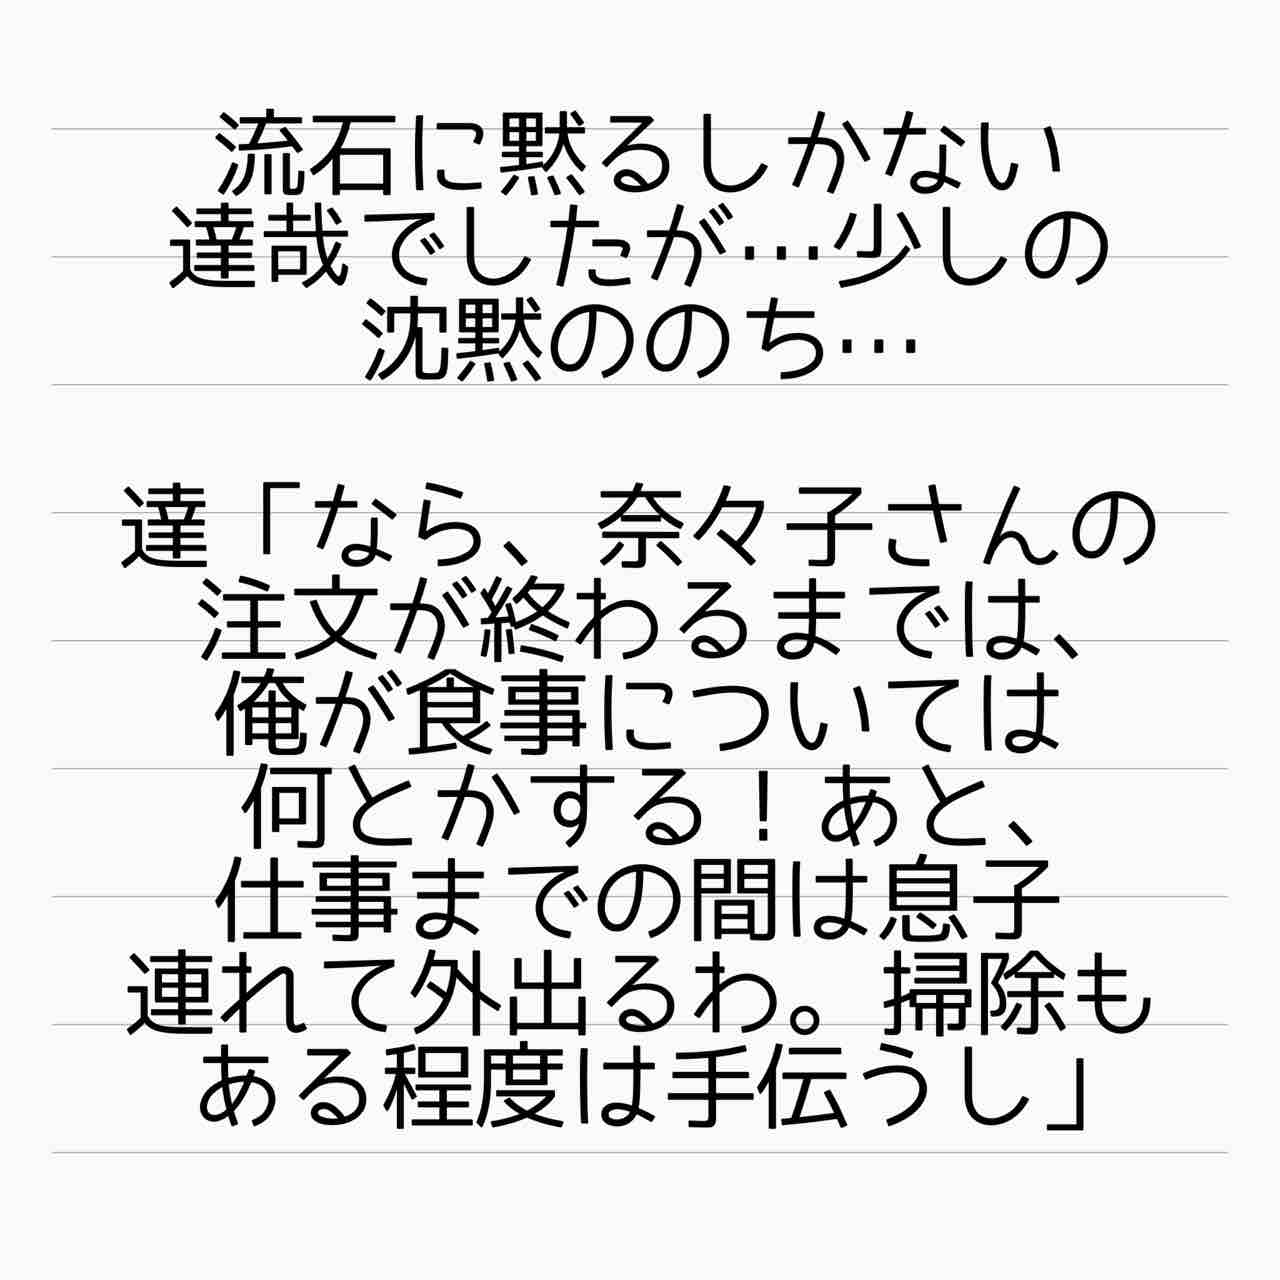 流石に黙るしかない
達哉でしたが…少しの
沈黙ののち…
達「なら、奈々子さんの
注文が終わるまでは、
俺が食事については
何とかする！あと、
仕事までの間は息子
連れて外出るわ。掃除も
ある程度は手伝うし」